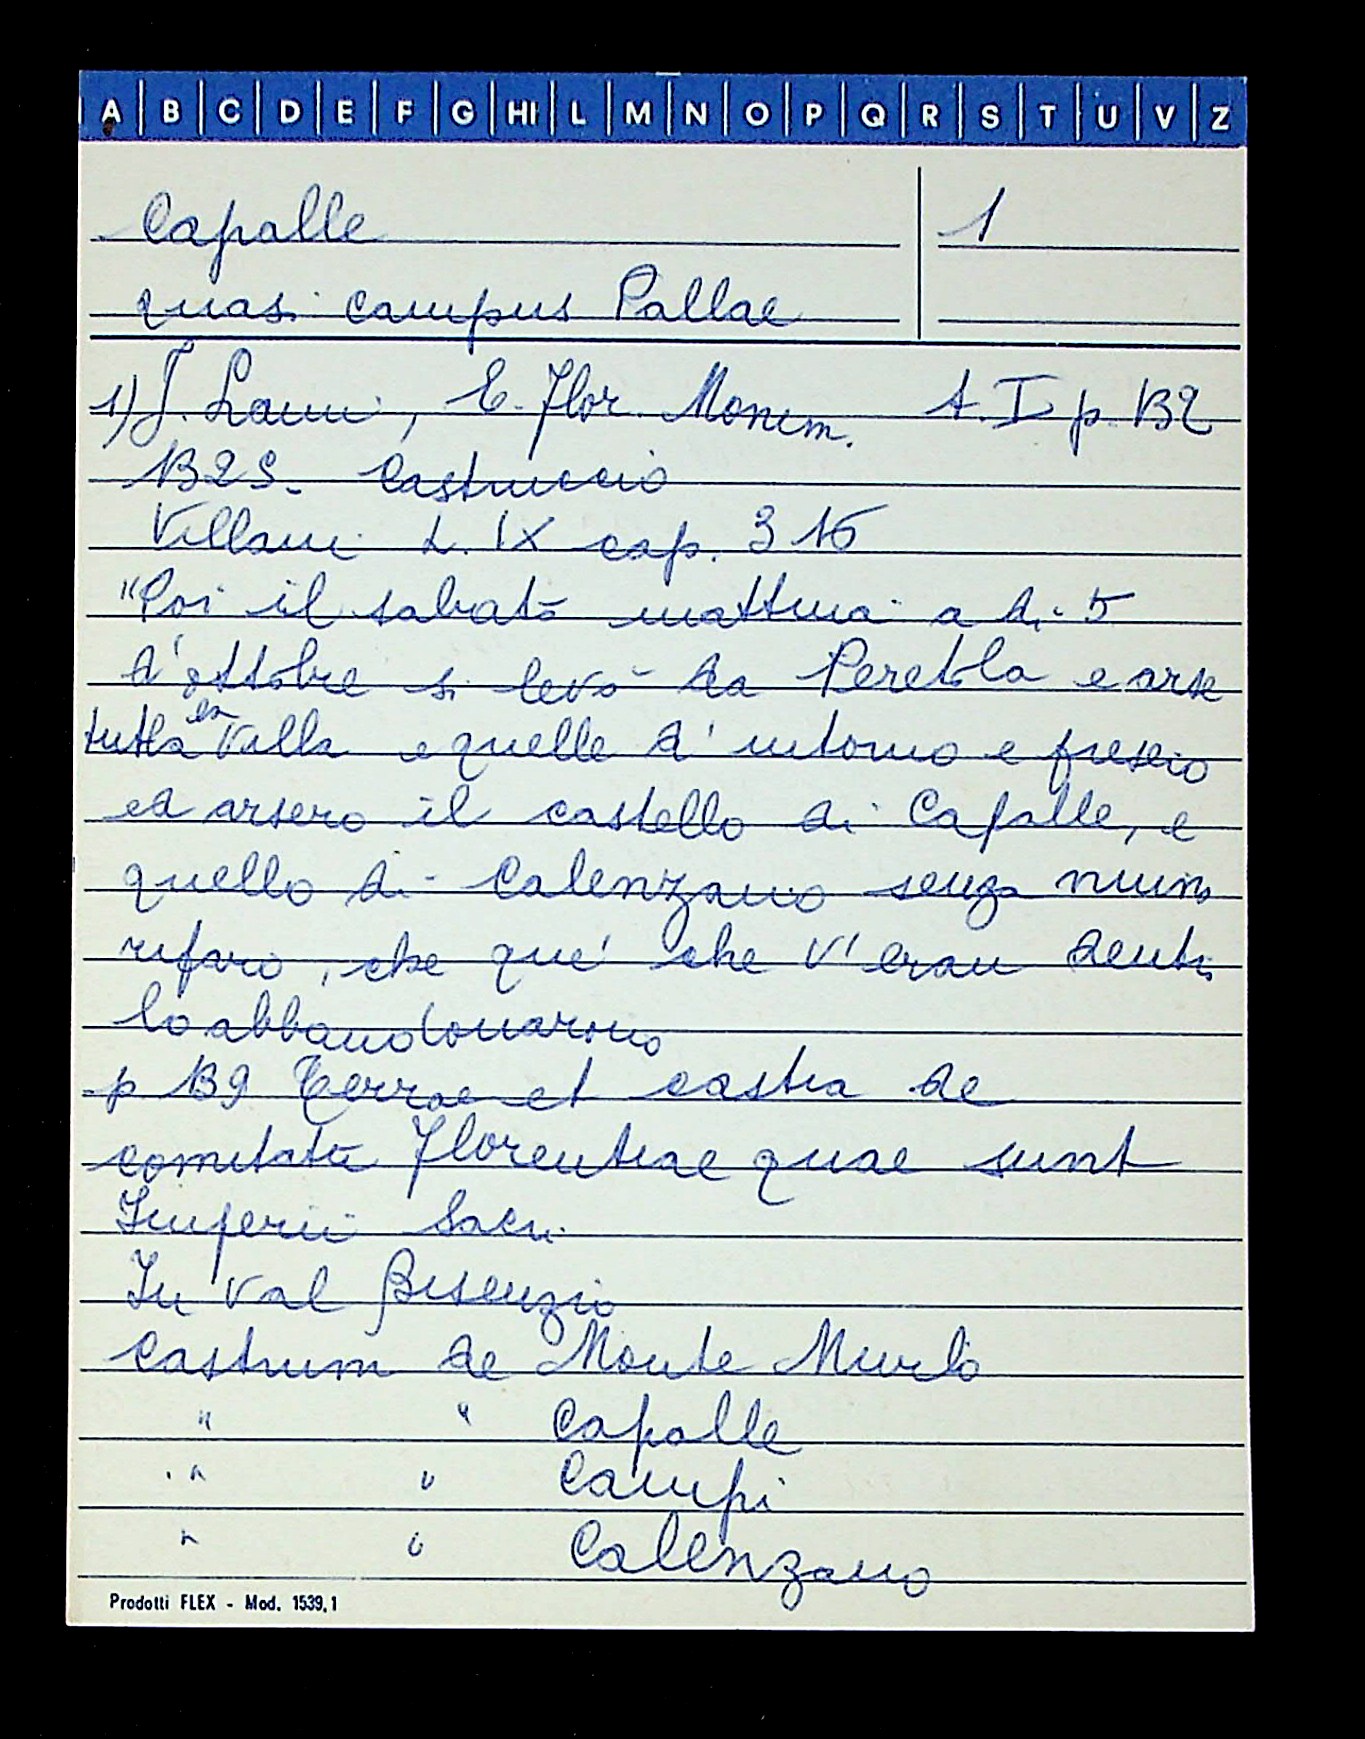 A B C D E F G HI L M N O P Q R S T U V Z
Capalle 1
quasi campus Pallae
1) J. Lami, E. Flor. Monum. t. I p. 132
1325. Castruccio
Villani L. IX cap. 316
"Poi il sabato mattina a di 5
d'ottobre si levò da Peretola e arse
tutta la Villa e quelle d'intorno e presero
ed arsero il castello di Capalle, e
quello di Calenzano senza niuno
riparo, che que' che v'eran dentro
lo abbandonarono
p 139 Terrae et castra de
comitatu Florentiae quae sunt
Imperii Sacri
In Val Bisenzio
Castrum de Monte Murlo
" " Capalle
" " Campi
" " Calenzano
Prodotti FLEX - Mod. 1539,1